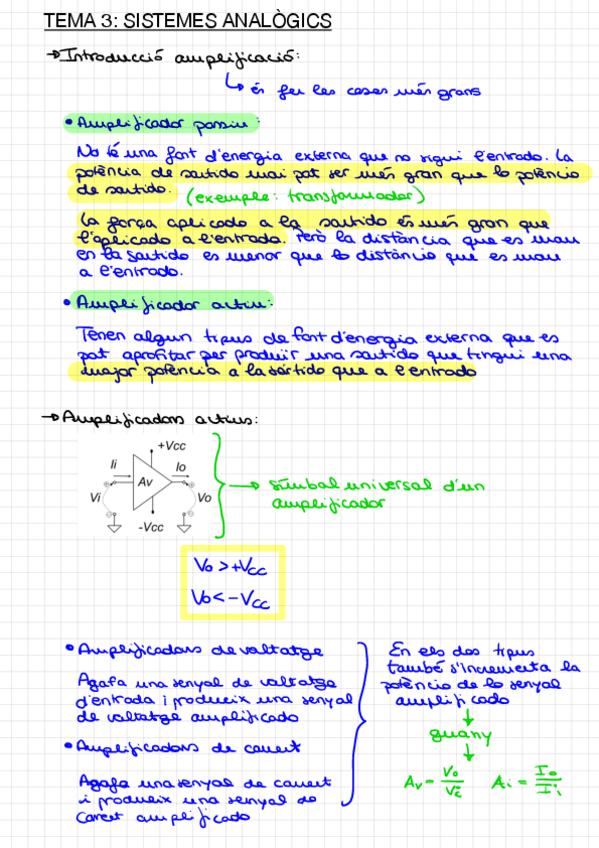 TEMA 3: SISTEMES ANALÒGICS
→ Introducció amplificació:
↳ és fer les coses més grans
• Amplificador passiu:
No té una font d'energia externa que no sigui l'entrada. La
potència de sortida mai pot ser més gran que la potència
de sortida. (exemple: transformador)
La força aplicada a la sortida és més gran que
l'aplicada a l'entrada. Però la distància que es mou
en la sortida es menor que la distància que es mou
a l'entrada.
• Amplificador actiu:
Tenen algun tipus de font d'energia externa que es
pot aprofitar per produir una sortida que tingui una
major potència a la sortida que a l'entrada
→ Amplificadors actius:
+Vcc
Ii
Io
Av
Vi
Vo
-Vcc
→ símbol universal d'un
amplificador
Vo > +Vcc
Vo < -Vcc
• Amplificadors de voltatge
Agafa una senyal de voltatge
d'entrada i produeix una senyal
de voltatge amplificada
• Amplificadors de corrent
Agafa una senyal de corrent
i produeix una senyal de
corrent amplificada
En els dos tipus
també s'incrementa la
potència de la senyal
amplificada
↓
guany
↓
Av = Vo/Vi Ai = Io/Ii